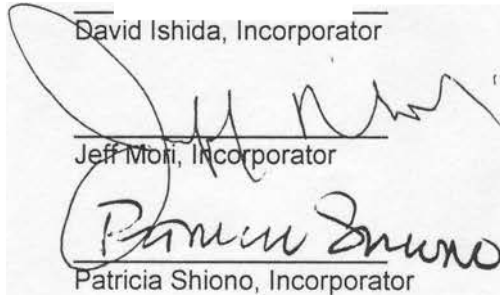 David Ishida, Incorporator
Jeff Mori
Jeff Mori, Incorporator
Patricia Shiono
Patricia Shiono, Incorporator